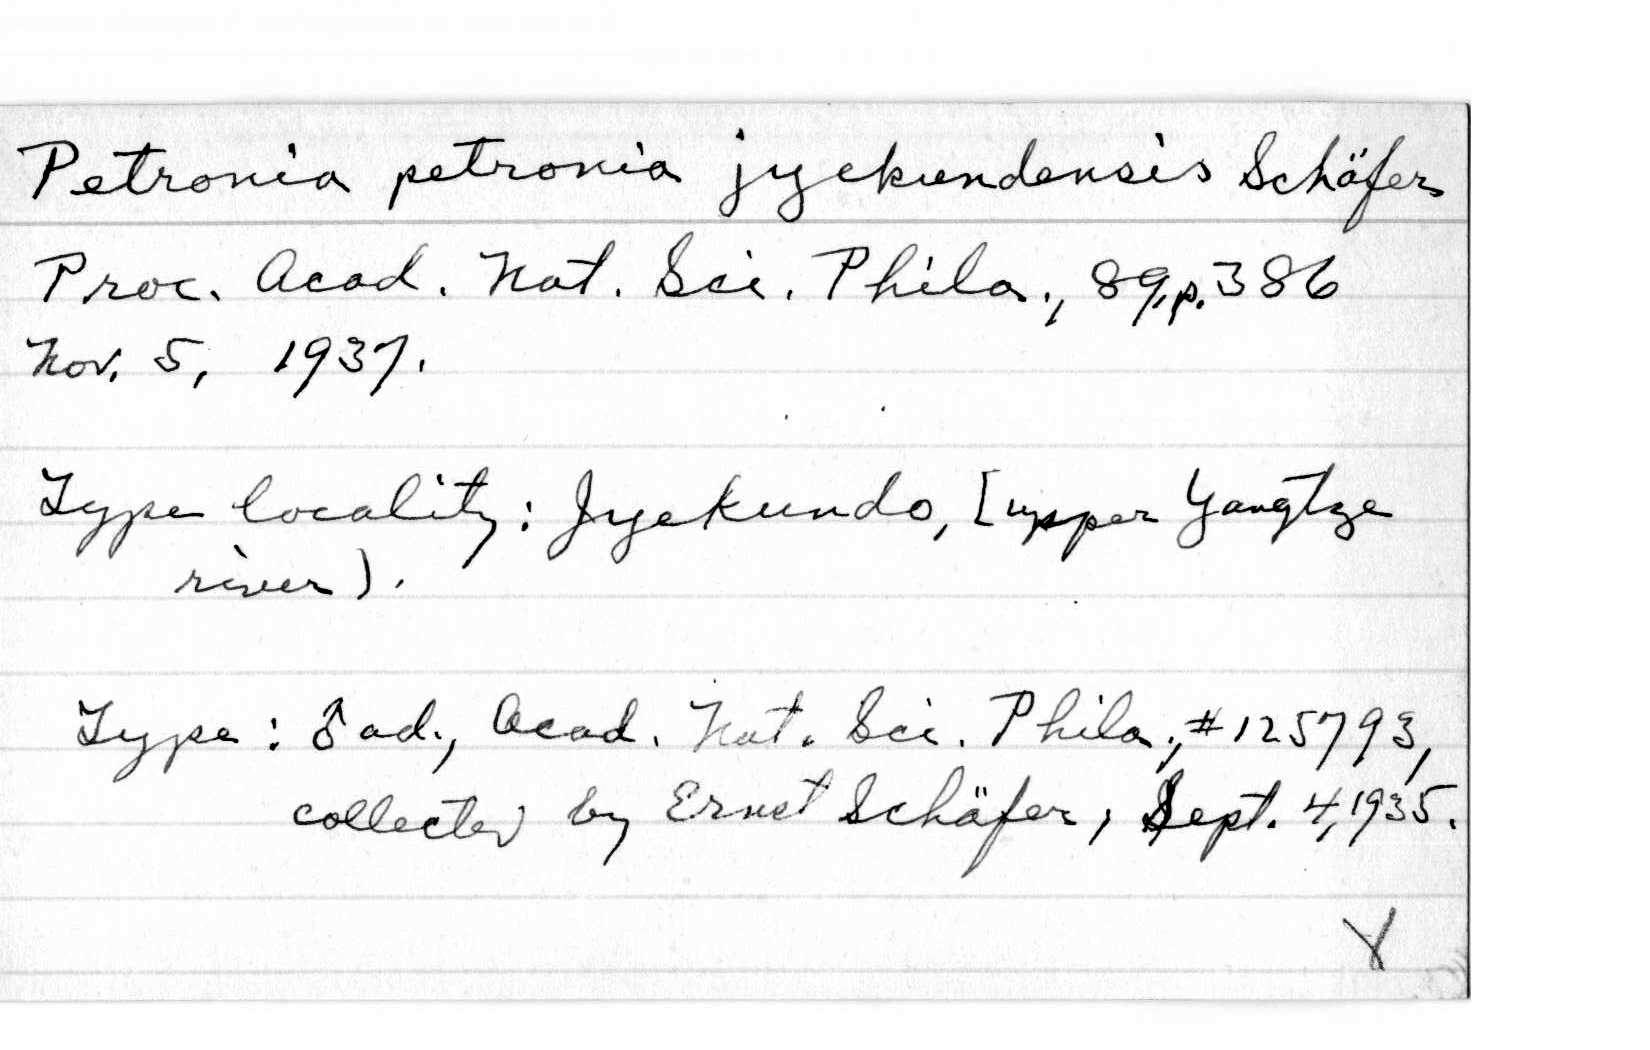 Petronia petronia jyekundensis Schäfer
Proc. Acad. Nat. Sci. Phila., 89, p. 386
Nov. 5, 1937.
Type locality: Jyekundo, [upper Yangtze
river).
Type: ♂ ad., Acad. Nat. Sci. Phila., #125793,
collected by Ernst Schäfer, Sept. 4, 1935.